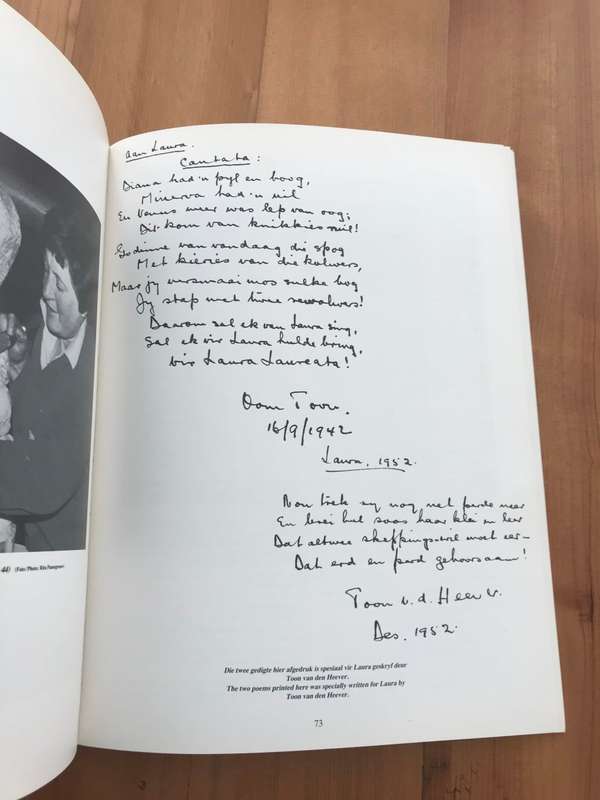 aan Laura.
Cantata:
Diana had 'n pyl en boog,
Minerva had 'n uil
En Venus weer was lep van oog;
Dis kom van knikkies ruil!
Godinne van vandag die spog
Met kieries van die kolwers,
Maar jy versmaai mos sulke bog
Jy stap met twee rewolwers!
Daarom sal ek van Laura sing,
Sal ek vir Laura hulde bring,
Vir Laura Laureata!
Oom Toon.
16/9/1942
Laura, 1952.
Nou trek sy nog net perde neer
En brei hul soos haar klei en leer
Dat altwee skeppings-wil moet eer–
Dat erd en perd gehoorsaam!
Toon v. d. Heever.
Des. 1952.
44) (Foto/Photo:
Die twee gedigte hier afgedruk is spesiaal vir Laura geskryf deur
Toon van den Heever.
The two poems printed here was specially written for Laura by
Toon van den Heever.
73